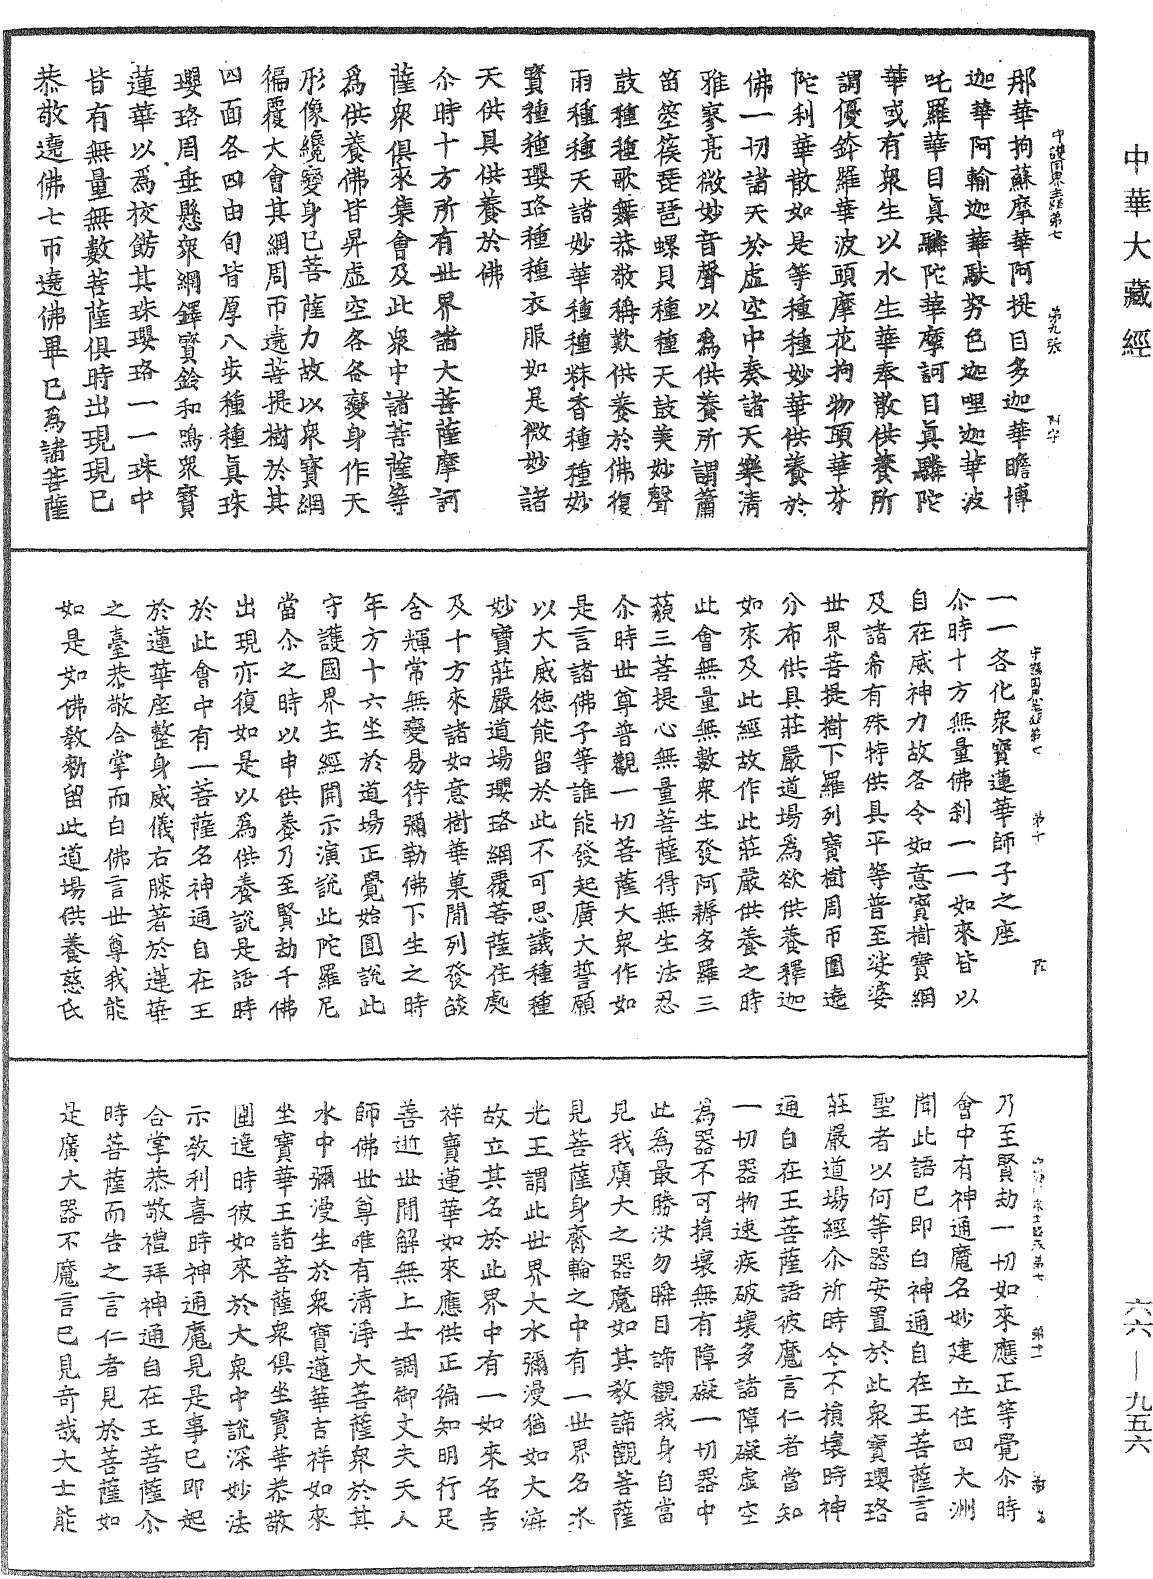 中華大藏經
六六—九五六
那華拘蘇摩華阿提目多迦華瞻博
迦華阿輸迦華馱努色迦哩迦華波
吒羅華目真驎陀華摩訶目真驎陀
華或有衆生以水生華奉散供養所
謂優鉢羅華波頭摩花拘物頭華芬
陀利華散如是等種種妙華供養於
佛一切諸天於虛空中奏諸天樂清
雅寥亮微妙音聲以爲供養所謂簫
笛箜篌琵琶螺貝種種天鼓美妙聲
鼓種種歌舞恭敬稱歎供養於佛復
雨種種天諸妙華種種粖香種種妙
寶種種瓔珞種種衣服如是微妙諸
天供具供養於佛
尒時十方所有世界諸大菩薩摩訶
薩衆俱來集會及此衆中諸菩薩等
爲供養佛皆昇虛空各各變身作天
形像纔變身已菩薩力故以衆寶網
徧覆大會其網周帀遶菩提樹於其
四面各四由旬皆厚八步種種真珠
瓔珞周垂懸衆網鐸寶鈴和鳴衆寶
蓮華以爲挍飾其珠瓔珞一一珠中
皆有無量無數菩薩俱時出現現已
恭敬遶佛七帀遶佛畢已爲諸菩薩
守護國界主經第七
第九張
一一各化衆寶蓮華師子之座
尒時十方無量佛刹一一如來皆以
自在威神力故各令如意寶樹寶網
及諸希有殊特供具平等普至娑婆
世界菩提樹下羅列寶樹周帀圍遶
分布供具莊嚴道場爲欲供養釋迦
如來及此經故作此莊嚴供養之時
此會無量無數衆生發阿耨多羅三
藐三菩提心無量菩薩得無生法忍
尒時世尊普觀一切菩薩大衆作如
是言諸佛子等誰能發起廣大誓願
以大威德能留於此不可思議種種
妙寶莊嚴道場瓔珞網覆菩薩住處
及十方來諸如意樹華菓開列發燄
含輝常無變易待彌勒佛下生之時
年方十六坐於道場正覺始圓說此
守護國界主經開示演說此陀羅尼
當尒之時以申供養乃至賢劫千佛
出現亦復如是以爲供養說是語時
於此會中有一菩薩名神通自在王
於蓮華座整身威儀右膝著於蓮華
之臺恭敬合掌而白佛言世尊我能
如是如佛教勑留此道場供養慈氏
第十
陁
乃至賢劫一切如來應正等覺尒時
會中有神通魔名妙建立住四大洲
聞此語已即白神通自在王菩薩言
聖者以何等器安置於此衆寶瓔珞
莊嚴道場經尒所時令不損壞時神
通自在王菩薩語彼魔言仁者當知
一切器物速疾破壞多諸障礙虛空
爲器不可損壞無有障礙一切器中
此爲最勝汝勿瞬目諦觀我身自當
見我廣大之器魔如其教諦觀菩薩
見菩薩身齎輪之中有一世界名水
光王謂此世界大水彌漫猶如大海
故立其名於此界中有一如來名吉
祥寶蓮華如來應供正徧知明行足
善逝世間解無上士調御丈夫天人
師佛世尊唯有清淨大菩薩衆於其
水中彌漫生於衆寶蓮華吉祥如來
坐寶華王諸菩薩衆俱坐寶華恭敬
圍遶時彼如來於大衆中說深妙法
示教利喜時神通魔見是事已即起
合掌恭敬禮拜神通自在王菩薩尒
時菩薩而告之言仁者見於菩薩如
是廣大器不魔言已見奇哉大士能
第十一